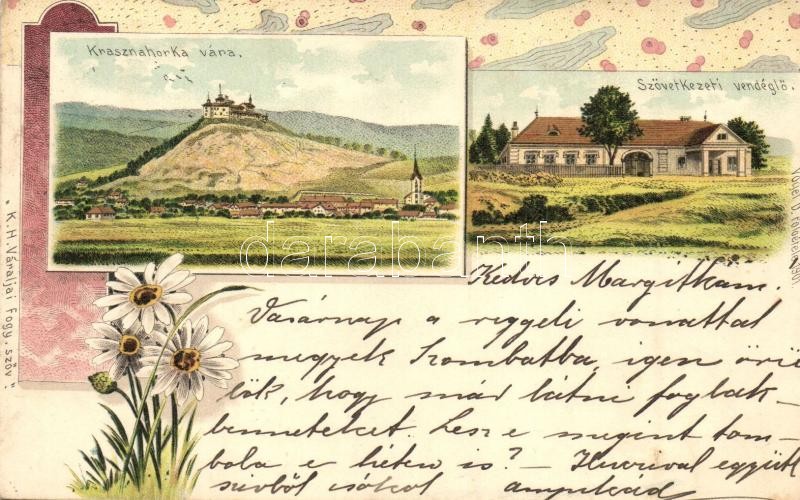 Krasznahorka vára.
Szövetkezeti vendéglő.
"K. H. Váraljai fogy. szöv."
darabanth
Kedves Margitkam.
Vasárnap a reggeli vonattal
megyek Szombatba, igen örü
lök, hogy már látni foglak-
benneteket. Lesz e megint tom-
bola e héten is? – együtt
szivből csókol anyukád